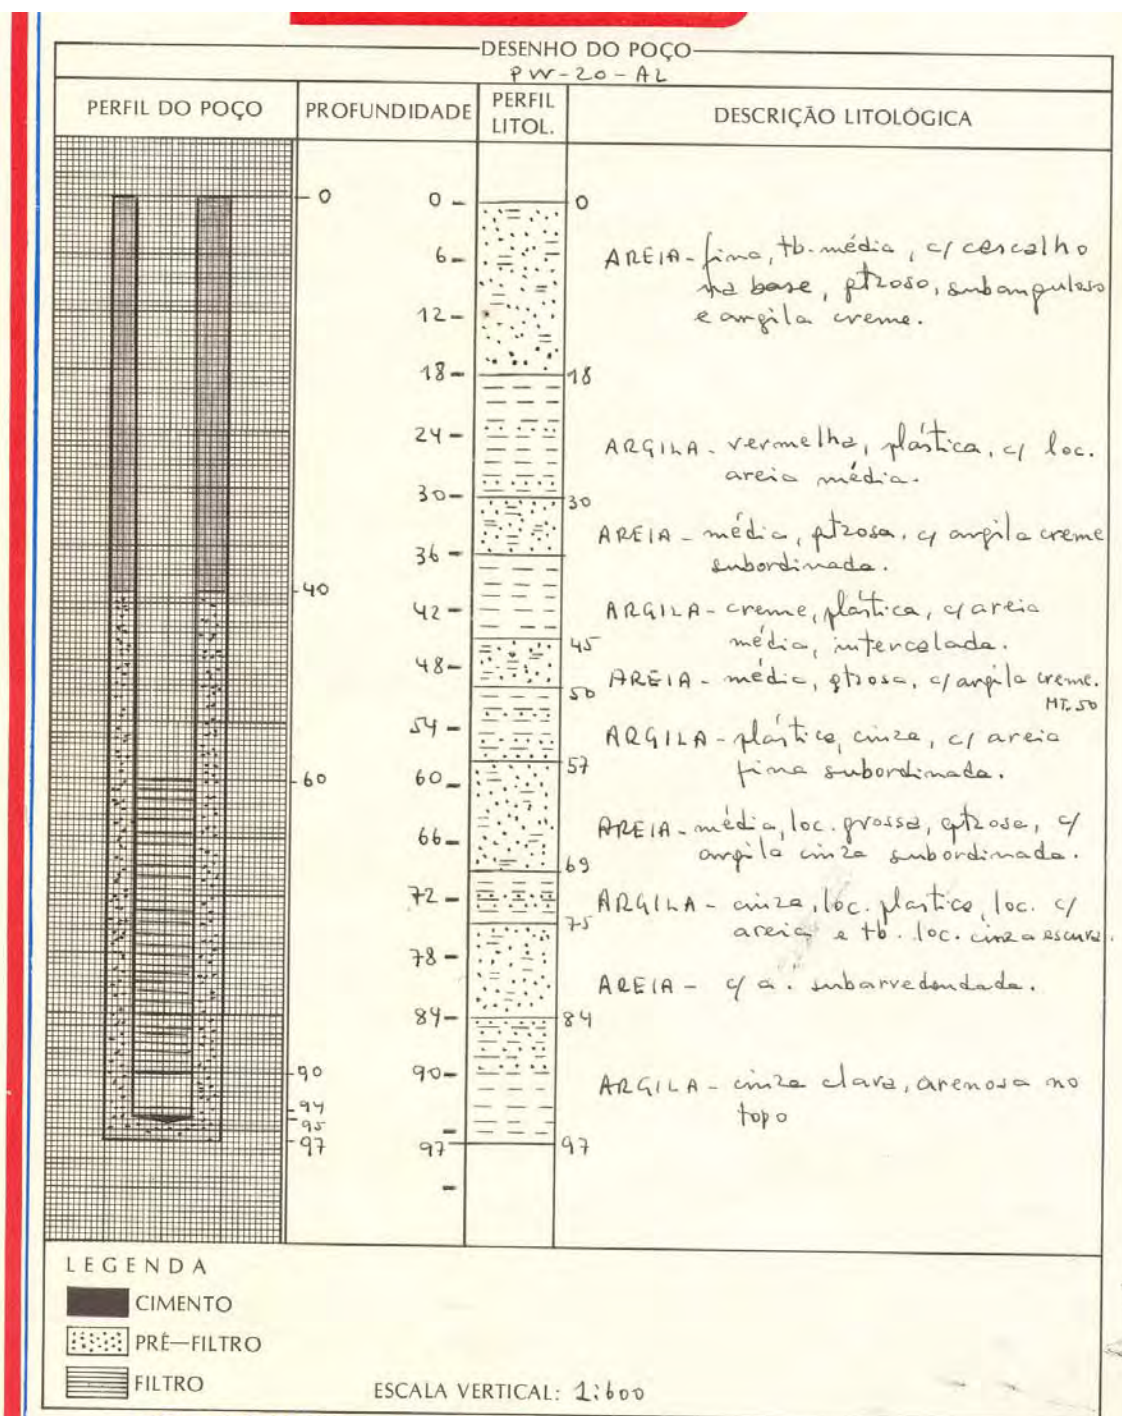 DESENHO DO POÇO
PW-20-AL
PERFIL DO POÇO
PROFUNDIDADE
PERFIL
LITOL.
DESCRIÇÃO LITOLÓGICA
0
40
60
90
94
95
97
0
6
12
18
24
30
36
42
48
54
60
66
72
78
84
90
97
0
18
30
45
50
57
69
75
84
97
AREIA - fina, tb. média, c/ cascalho
na base, qtzoso, subanguloso
e argila creme.
ARGILA - vermelha, plástica, c/ loc.
areia média.
AREIA - média, qtzosa, c/ argila creme
subordinada.
ARGILA - creme, plástica, c/ areia
média, intercalada.
AREIA - média, qtzosa, c/ argila creme.
MT. 50
ARGILA - plástica, cinza, c/ areia
fina subordinada.
AREIA - média, loc. grossa, qtzosa, c/
argila cinza subordinada.
ARGILA - cinza, loc. plástica, loc. c/
areia e tb. loc. cinza escura.
AREIA - c/ a. subarredondada.
ARGILA - cinza clara, arenosa no
topo
LEGENDA
CIMENTO
PRÉ-FILTRO
FILTRO
ESCALA VERTICAL: 1:600